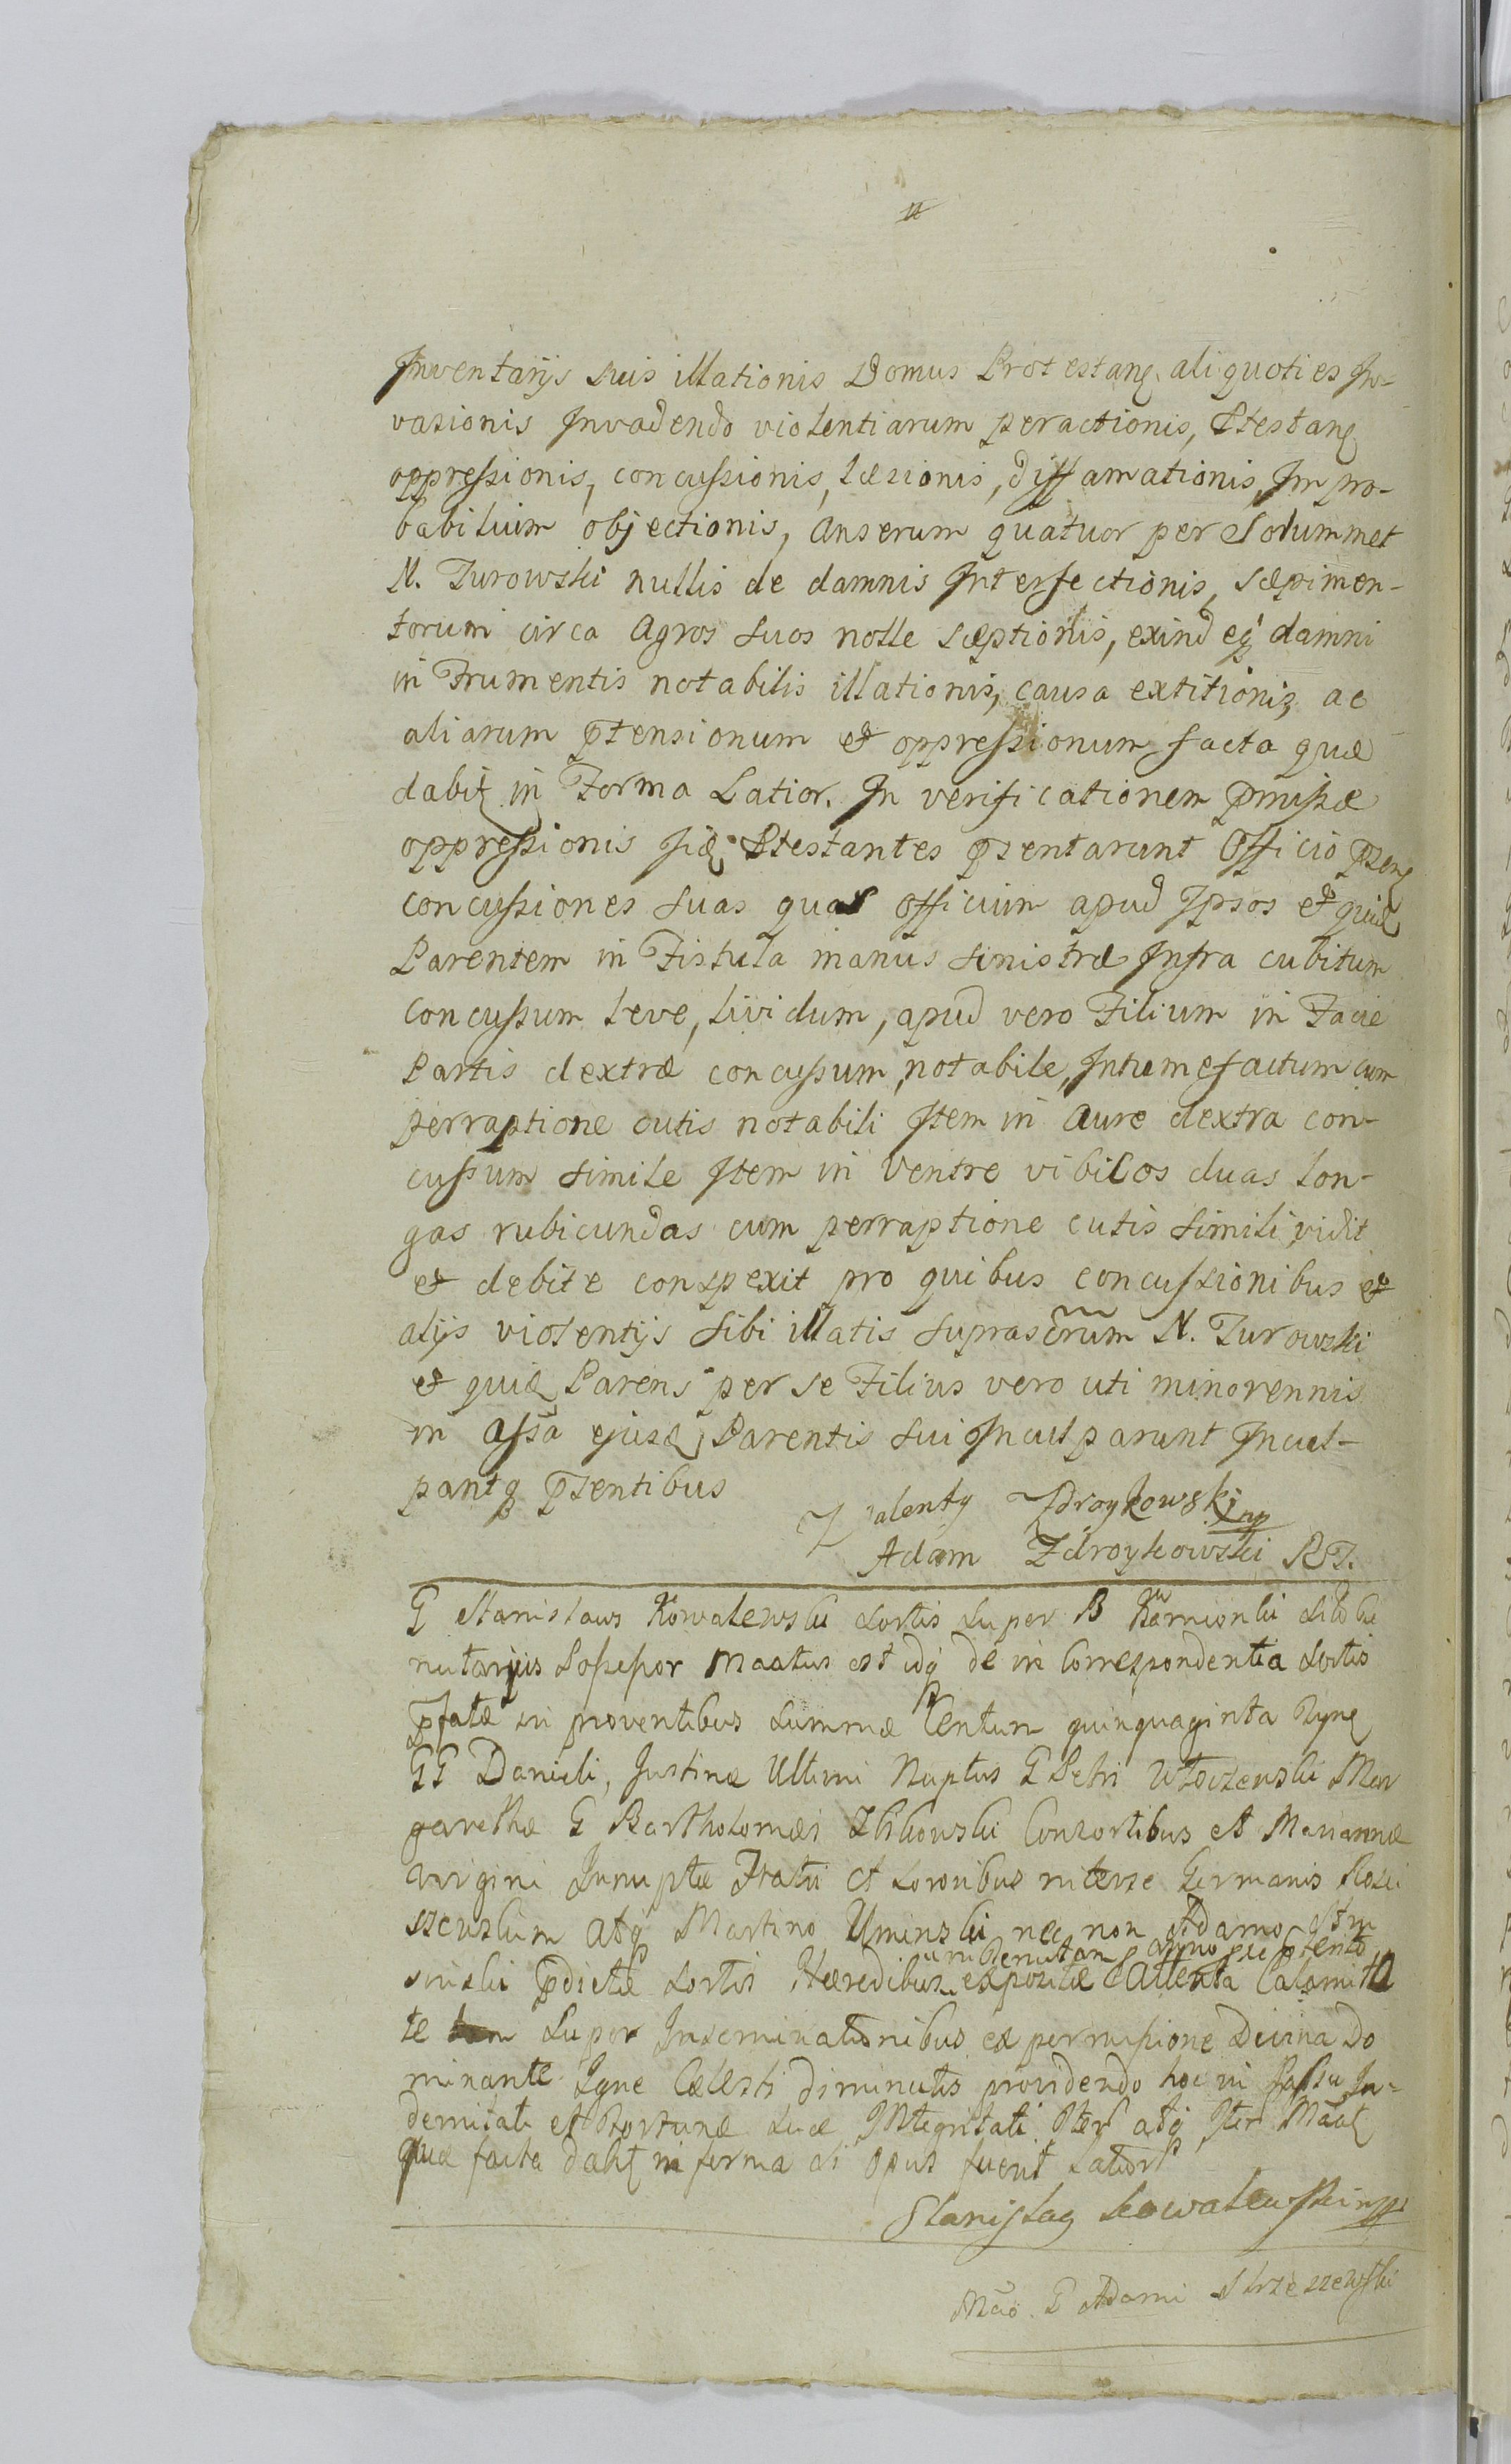 Inventarijs suis illationis Domus Protestanꝫ aliquoties In-
vasionis Invadendo violentiarum peractionis, Ptestanꝫ
oppressionis, concussionis, læsionis, diffamationis, Impro-
babilium objectionis, Anserum quatuor per Solummet
N. Turowski nullis de damnis Interfectionis, sæpimen-
torum circa Agros suos nolle sæptionis, exind eq́ damni
in Frumentis notabilis illationis, causa extitionis, ac
aliarum ptensionum et oppressionum facta quæ
dabiꝫ in Forma Latior. In verificationem pmissæ
oppressionis Iid Ptestantes psentarunt Officio psenꝫ
concussiones suas quas Officium apud Ipsos et quid
Parentem in Fistula manus sinistræ Infra cubitum
concussum leve, lividum, apud vero Filium in Facie
Partis dextræ concussum notabile, Intumefactum cum
perraptione cutis notabili Item in Aure dextra con-
cussum simile Item in Ventre vibices duas lon-
gas rubicundas cum perraptione cutis simili vidit
et debite conspexit pro quibus concussionibus et
alijs violentijs sibi illatis suprascrum N. Turowski
et quid Parens per se Filius vero uti minorennis
in Assa ejusd Parentis sui Inculparunt Incul-
pantq psentibus
Walenty Zdroykowski mp
Adam Zdroykowski RT.
G Stanislaus Kowalewski Sortis super B Kamionki
nutarijs Possessor Maatus est idq́ de in Correspondentia Sortis
pfatæ in proventibus Summæ Centum quinquaginta Tynꝫ
GG Danieli, Justinæ Ultimi Nuptus G Petri Włoczewski Mar
garethæ G Bartholomæi Zbikowski Consortibus et Mariannæ
Virgini Innuptæ Fratri et Sororibus interse Germanis
Atq́ Martino Uminski nec non Adamo
pdictæ Sortis Hæredibus expositæ Attenta Calamita
te Super Inseminationibus ex permissione Divina Do
minante Igne Cælesti diminutis providendo hoc in Passu In-
demnitati et Fortunæ Suæ Integritati Iter atq́ Iter Maat
quæ facta dabiꝫ in forma si opus fuerit Latiori
Stanisław Kowalewski mpp
Mao G Adami Strzeszewski